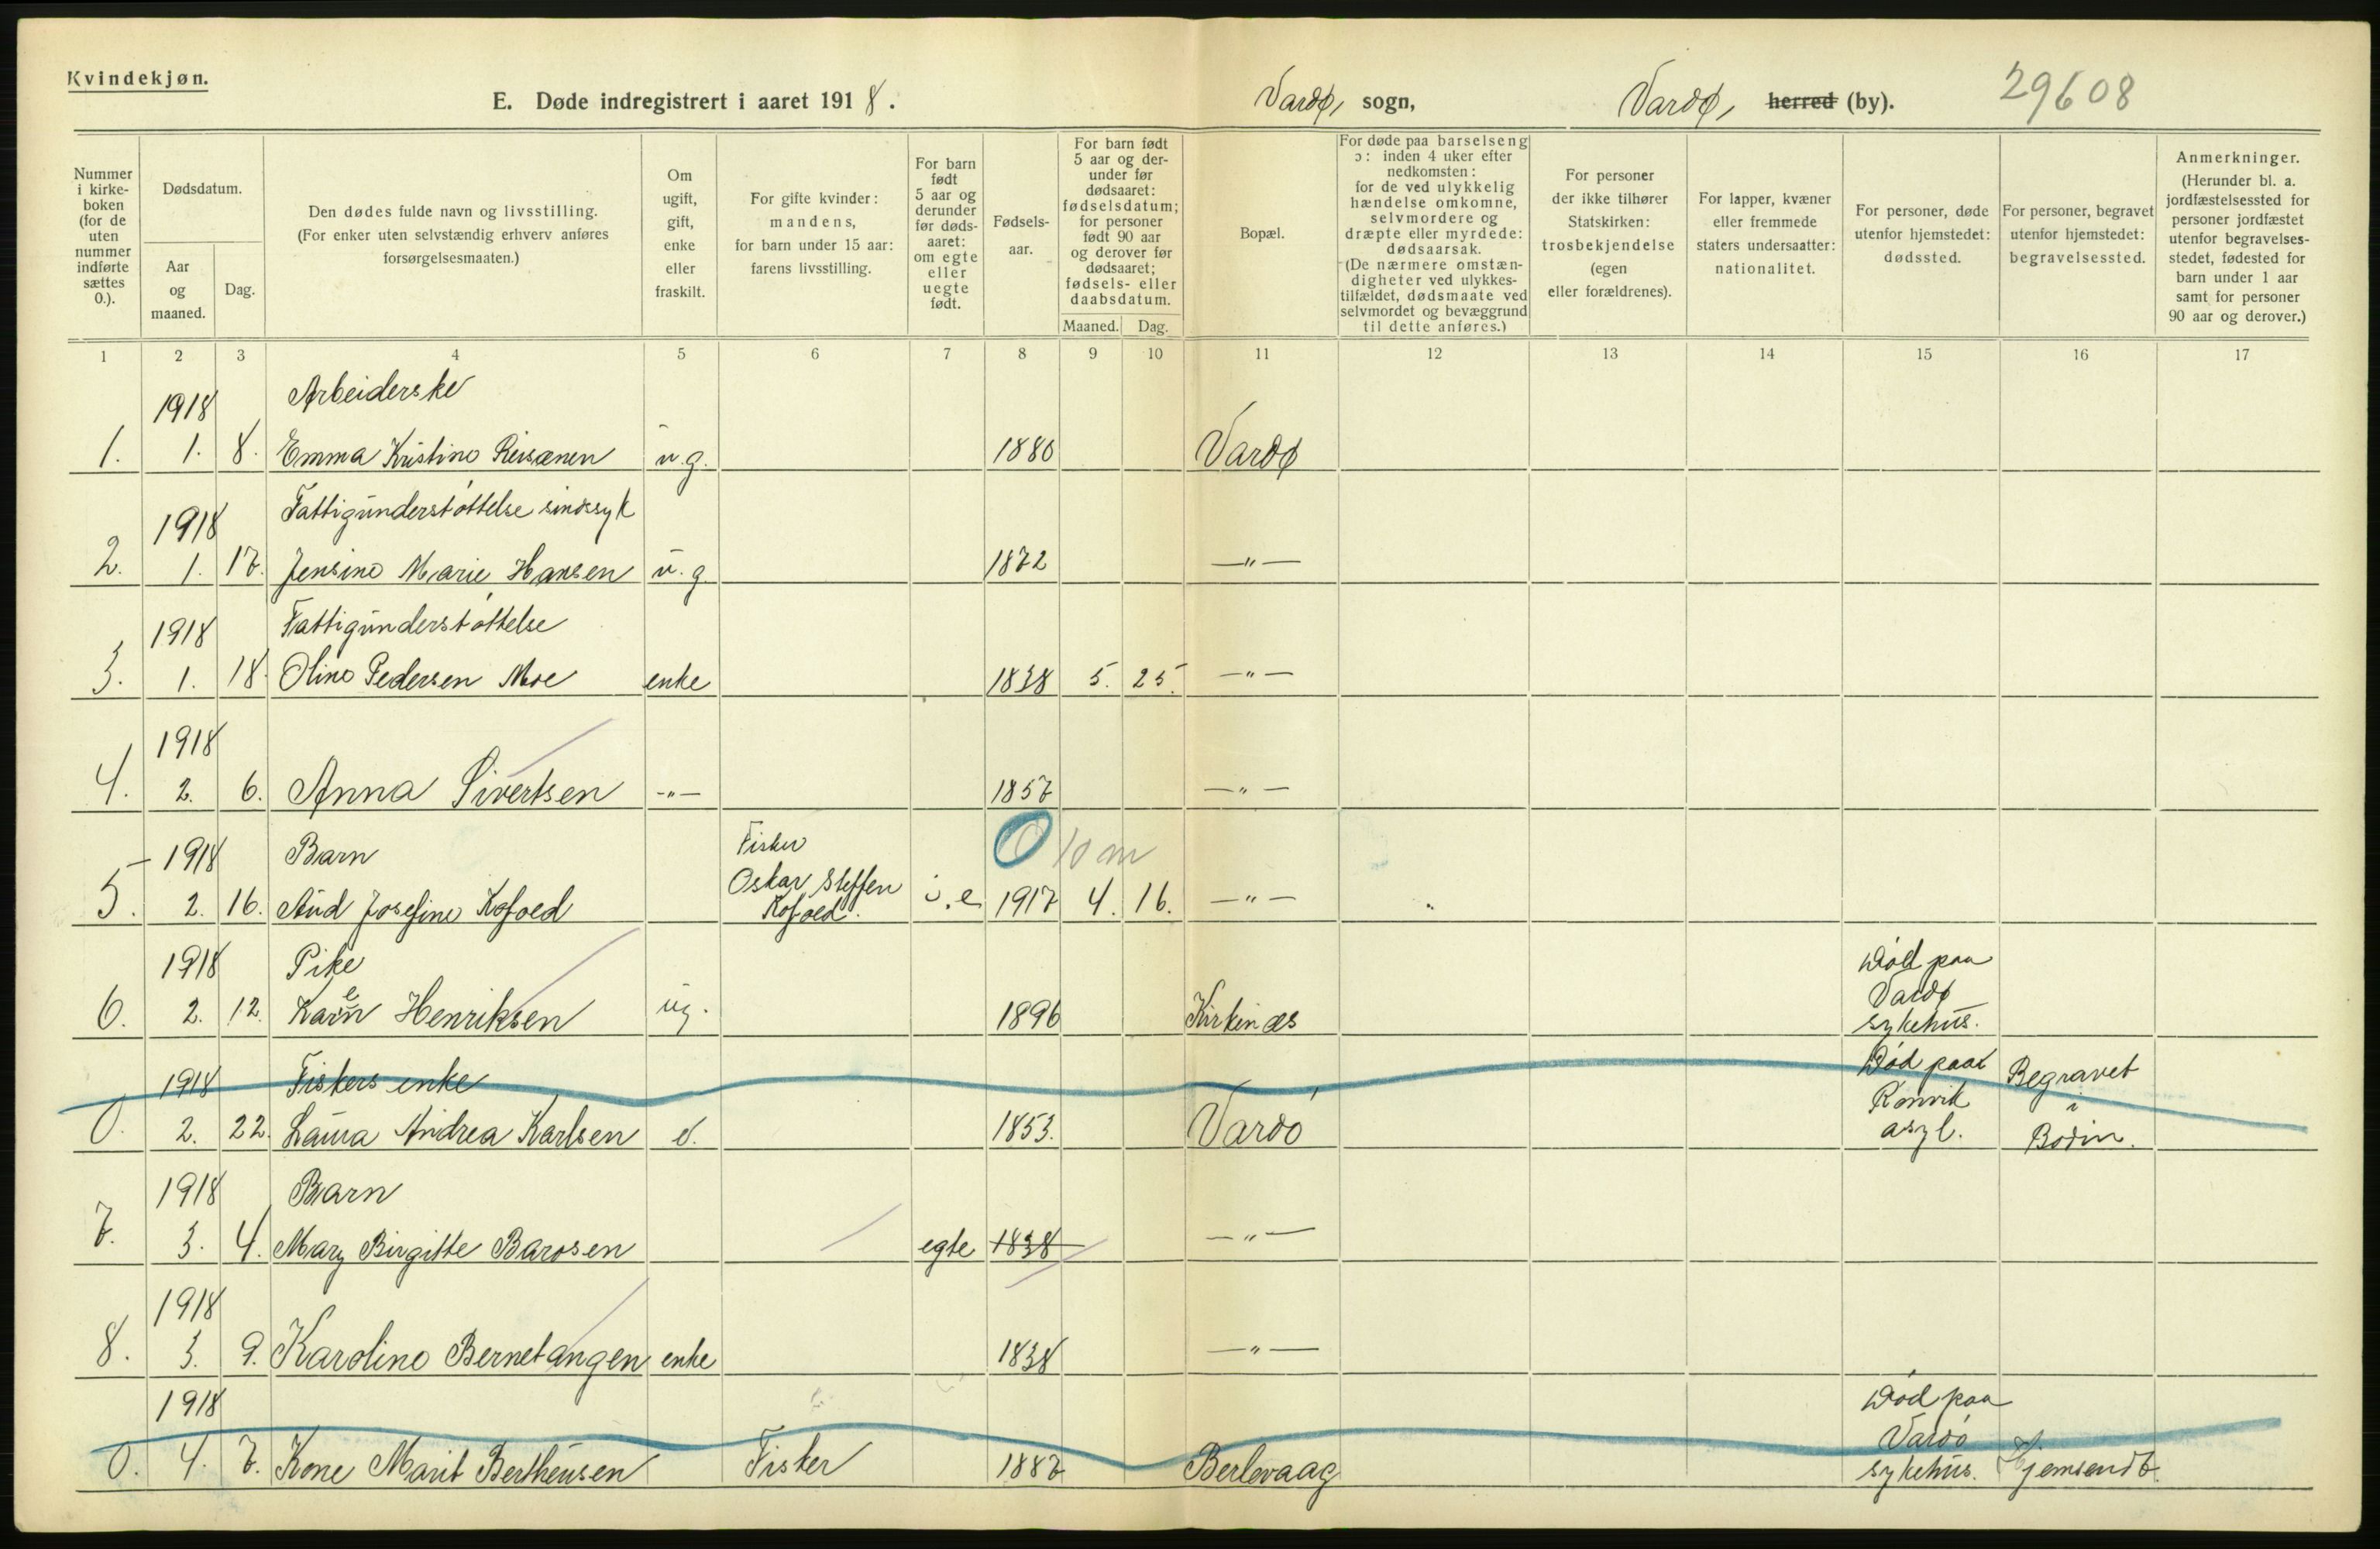 Kvindekjøn.
E. Døde indregistrert i aaret 1918. Vardø, sogn, Vardø, herred (by). 29608
Nummer i kirke-boken (for de uten nummer indførte sættes 0.).
Dødsdatum.
Aar og maaned.
Dag.
Den dødes fulde navn og livsstilling.
(For enker uten selvstændig erhverv anføres forsørgelsesmaaten.)
Om ugift, gift, enke eller fraskilt.
For gifte kvinder: mandens, for barn under 15 aar: farens livsstilling.
For barn født 5 aar og derunder før døds-aaret: om egte eller uegte født.
Fødsels-aar.
For barn født 5 aar og der-under før dødsaaret: fødselsdatum; for personer født 90 aar og derover før dødsaaret; fødsels- eller daabsdatum.
Maaned. Dag.
Bopæl.
For døde paa barselseng ɔ: inden 4 uker efter nedkomsten: for de ved ulykkelig hændelse omkomne, selvmordere og dræpte eller myrdede: dødsaarsak.
(De nærmere omstæn-digheter ved ulykkes-tilfældet, dødsmaate ved selvmordet og bevæggrund til dette anføres.)
For personer der ikke tilhører Statskirken: trosbekjendelse (egen eller forældrenes).
For lapper, kvæner eller fremmede staters undersaatter: nationalitet.
For personer, døde utenfor hjemstedet: dødssted.
For personer, begravet utenfor hjemstedet: begravelsessted.
Anmerkninger.
(Herunder bl. a. jordfæstelsessted for personer jordfæstet utenfor begravelses-stedet, fødested for barn under 1 aar samt for personer 90 aar og derover.)
1 2 3 4 5 6 7 8 9 10 11 12 13 14 15 16 17
1918 Arbeiderske
1. 1. 8. Emma Kristine Reisænen u.g. 1880 Vardø
1918 Fattigunderstøttelse sindssyk
2. 1. 17. Jensine Marie Hansen u.g. 1872 —"—
1918 Fattigunderstøttelse
3. 1. 18. Oline Pedersen Moe enke 1838 5. 25. —"—
1918
4. 2. 6. Anna Sivertsen —"— 1857 —"—
1918 Barn Fisker 0 10 m
5. 2. 16. Aud Josefine Kofoed Oskar Steffen Kofoed. u.e 1917 4. 16. —"—
1918 Pike Død paa
6. 2. 12. Karen Henriksen ug. 1896 Kirkenæs Vardø sykehus.
1918 Fiskers enke Død paa Begravet
0. 2. 22. Laura Andrea Karlsen e. 1853. Vardø Rønvik asyl. i Bodin.
1918 Barn
7. 3. 4. Mary Birgitte Barosen egte 1838 —"—
1918
8. 3. 9. Karoline Bernetangen enke 1838 —"—
1918 Død paa
0. 4. 7. Kone Marit Bertheusen Fisker 1887 Berlevaag Vardø sykehus. Hjemsendt.